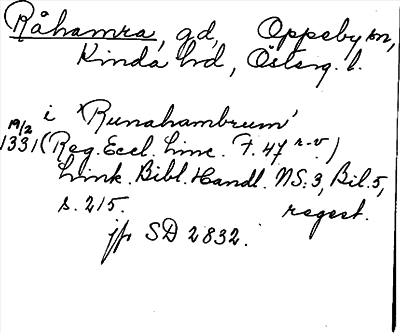 Råhamra, gd, Oppeby sn,
Kinda hd, Österg. l.
i 'Runahambrum'
19/2
1331 (Reg. Eccl. Linc. F. 47 r-v.)
Link. Bibl. Handl. NS: 3, Bil. 5,
s. 215. regest.
jfr SD 2832.